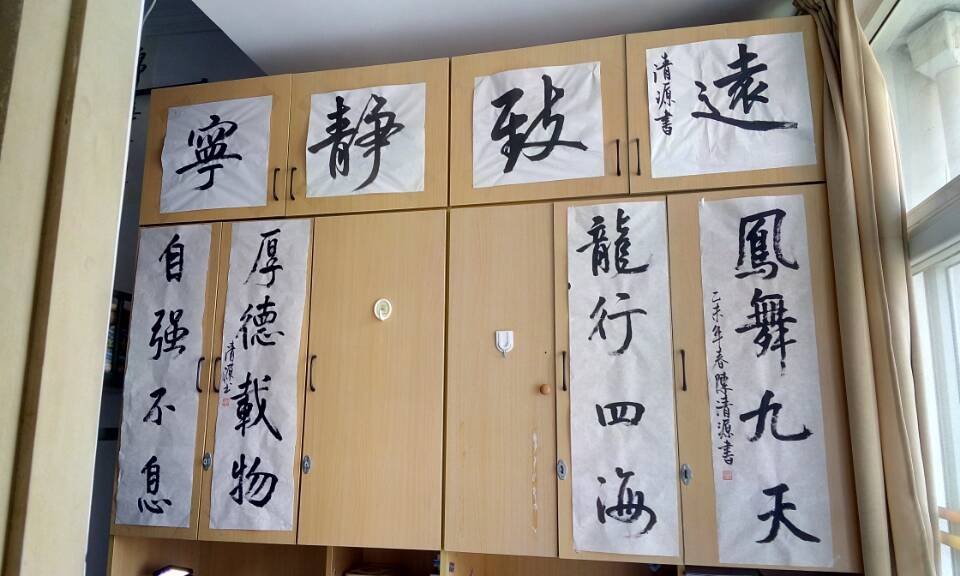 寧
靜
致
遠
清源書
自强不息
厚德載物
清源书
龍行四海
鳳舞九天
乙未年春陳清源書